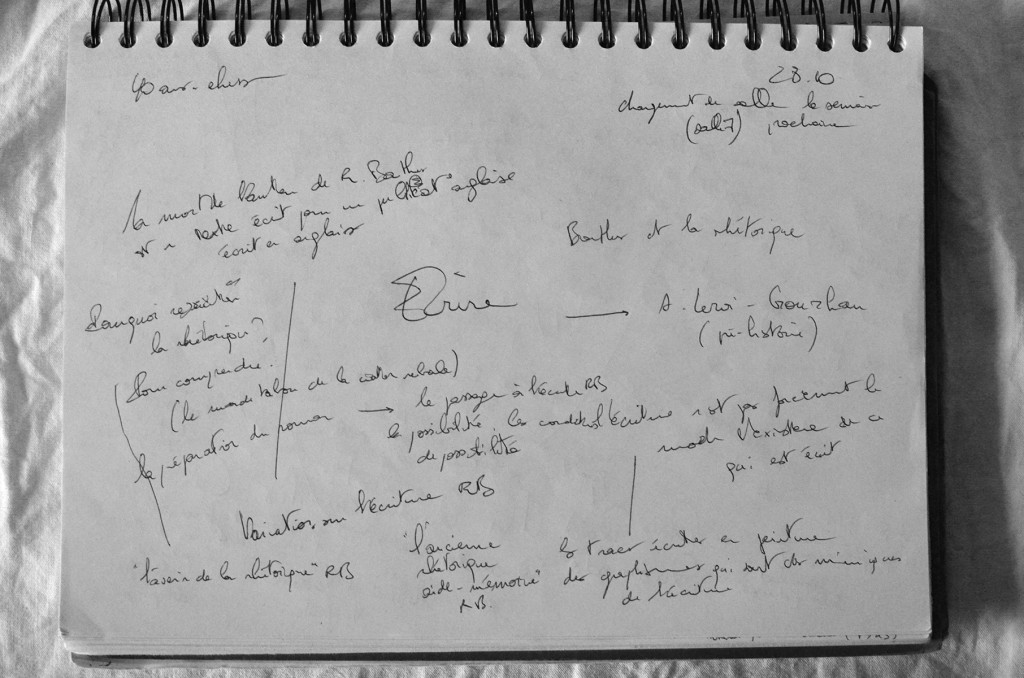 28.10
changement de salle la semaine
(salle 7) prochaine
La mort de l'auteur de R. Barthes
texte écrit pour un public anglais
écrit en anglais
Barthes et la rhétorique
Pourquoi
la rhétorique ?
Pour comprendre.
Écrire
A. Leroi-Gourhan
(pré-histoire)
(le monde de la )
la préparation du roman → le passage à l'écriture RB
la possibilité, les conditions
de possibilité
l'écriture n'est pas forcément le
mode d'existence de ce
qui est écrit
Variations sur l'écriture RB
"l'avenir de la rhétorique" RB
"l'ancienne
rhétorique
aide-mémoire"
RB.
écriture en peinture
des graphismes qui sont des mimiques
de l'écriture